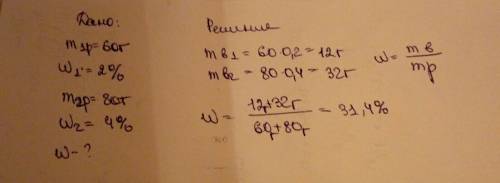 Дано:
m1р=60г
ω1=2%
m2р=80г
ω2=4%
ω-?
Решение
mв1=60·0,2=12г
mв2=80·0,4=32г
ω=mв/mр
ω=12г+32г/60г+80г=31,4%